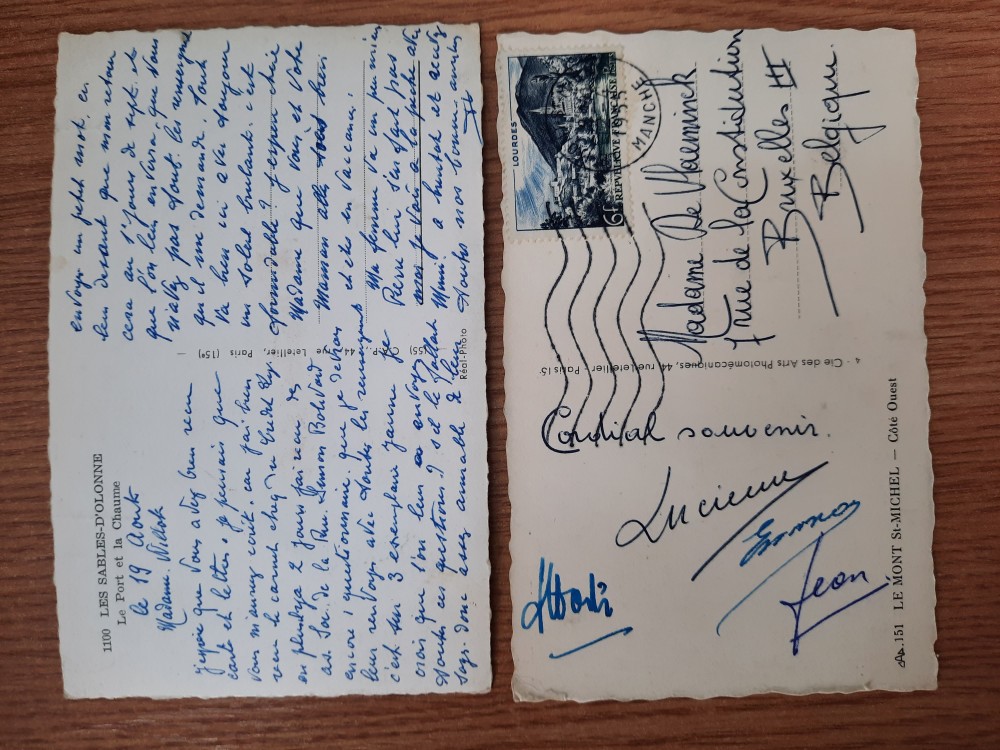 1100 LES SABLES-D'OLONNE
Le Port et la Chaume
le 19 Août
Madame
j'espère que vous avez bien recu
carte et lettre, je pensais que
vous m'auriez écrit. car j'ai bien
recu le carnet cheque
en plus il y a 2 jours j'ai recu de
ass. Soc. de la Rue. Simson Bolivard
encore 1 questionnaire que je devrais
leur renvoyé avec toutes les renseignents
c'est sur 3 exemplaire jaune je
crois que l'on leur a envoyez
toutes ces questions? s'il le fallait
soyez donc assez aimable de leur
envoyé un petit mot. en
leur disant que mon retour
cera au 1 jours de sept. et
que l'on leur enverra. que vous
n'avez pas tout. les renseigne
qu'il me demande. tout
va bien ici a vec toujours
un soleil brulant. c'est
formidable? j'espere chère
Madame que vous et votre
Maman alle tous bien
et etes en vaccance.
Ma femme va un peu mieux
Pierre lui s'en fout pas
mal je vais a la pèche avec
Mimi. a bientot et acceptez
toutes nos bonne amitiés
(55) C.A.P., 44, rue Letellier, Paris (15e)
Réal-Photo
LOURDES
6F
REPUBLIQUE FRANÇAISE
MANCHE
Madame De Vlaeminck
7 rue de la Constitution
Bruxelles III
Belgique.
4 - Cie des Arts Photomécaniques, 44, rue Letellier - Paris 15e
Cordial souvenir.
Lucienne
Emma
Jean
AP. 151 LE MONT St-MICHEL — Côté Ouest